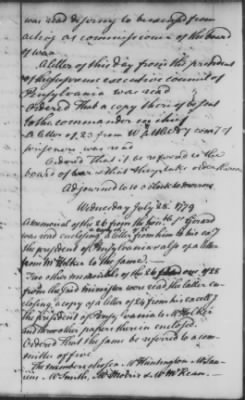 was read desiring to be excused from
acting as commissioner of the board
of war
A letter of this day from the president
of the supreme executive council of
Pensylvania was read
Ordered That a copy thereof be sent
to the commander in chief
A letter of 23 from comy of
prisoners was read
Ordered That it be referred to the
board of war & that they take order thereon
Adjourned to 10 o'Clock to morrow
Wednesday July 28. 1779
A memorial of the 26 from the honble Sr Gerard
was read enclosing a letter from him to his exy
the president of Pensylvania also of a letter
from Mr Holker to the same
Two other memorials of the 26 and one of 28
from the said minister were read the latter en-
closing a copy of a letter of 24 from his excelly
the president of Pensylvania to Mr Holker
and two other papers therein enclosed
Ordered That the same be referred to a com-
mittee of five
The members chosen Mr Huntington Mr Lau-
rens Mr Smith, Mr Morris & Mr McKean